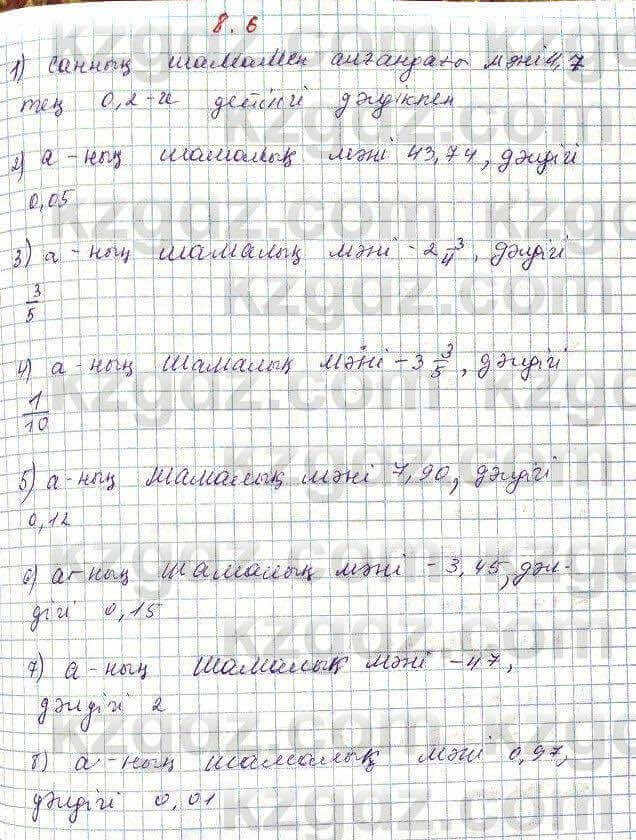 8.6
1) санның шамамен алғандағы мәні 4,7
тең 0,2-ге дейінгі дәлдікпен
2) a-ның шамалық мәні 43,74, дәлдігі
0,05
3) a-ның шамалық мәні -2 3/4, дәлдігі
3/5
4) a-ның шамалық мәні -3 3/5, дәлдігі
1/10
5) a-ның шамалық мәні 7,90, дәлдігі
0,12
6) a-ның шамалық мәні -3,45, дәл-
дігі 0,15
7) a-ның шамалық мәні -47,
дәлдігі 2
8) a-ның шамалық мәні 0,97,
дәлдігі 0,01
kzgdz.com